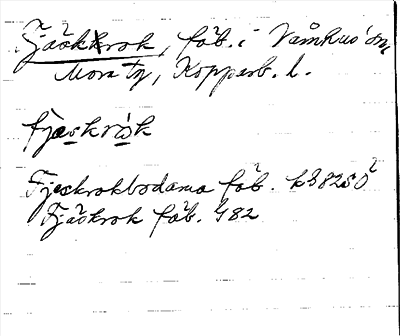 Fjäckkrok, fäb. i Våmhus sn,
Mora tg, Kopparb. l.
fjæskròk
Fjeckrokbodarna fäb. k382sÖ
Fjäckrok fäb. G82